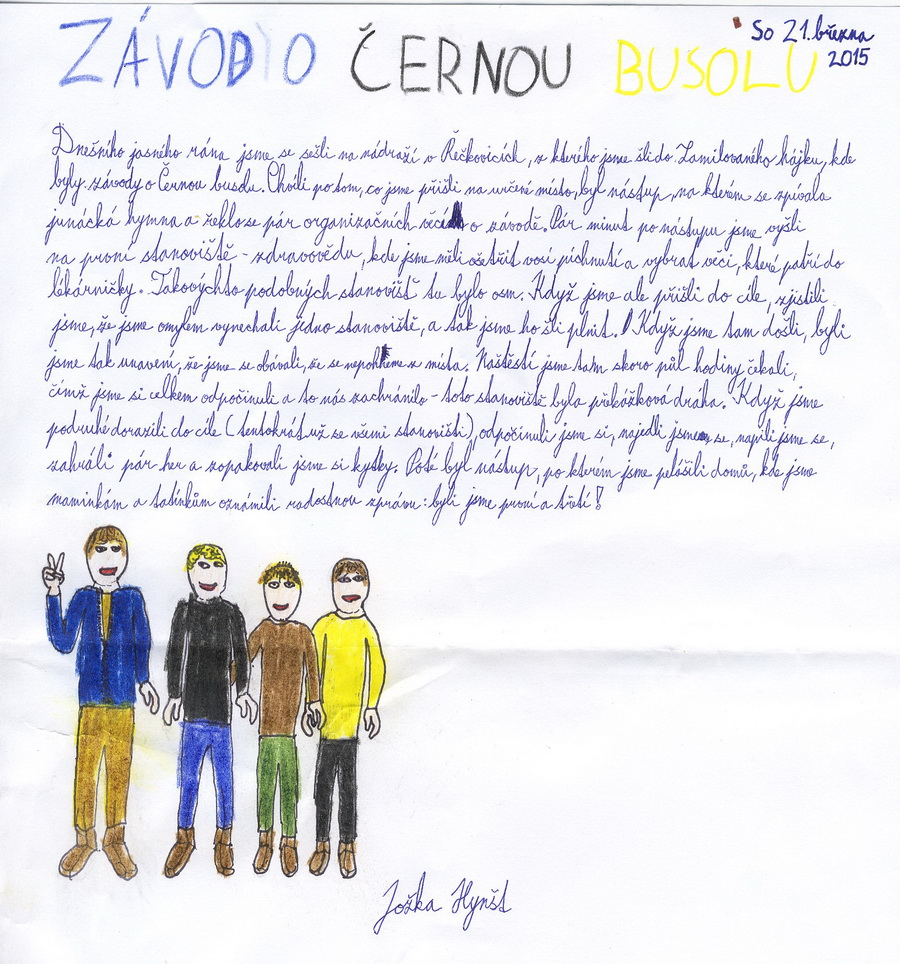 ZÁVOD O ČERNOU BUSOLU
So 21. března
2015
Dnešního jasného rána jsme se sešli na nádraží v Řečkovicích, z kterého jsme šli do Zamilovaného hájku, kde
byly závody o Černou busolu. Chvíli po tom, co jsme přišli na určené místo, byl nástup, na kterém se zpívala
junácká hymna a řeklo se pár organizačních věcí o závodě. Pár minut po nástupu jsme vyšli
na první stanoviště - zdravovědu, kde jsme měli ošetřit vosí píchnutí a vybrat věci, které patří do
lékárničky. Takovýchto podobných stanovišť tu bylo osm. Když jsme ale přišli do cíle, zjistili
jsme, že jsme omylem vynechali jedno stanoviště, a tak jsme ho šli plnit. Když jsme tam došli, byli
jsme tak unavení, že jsme se obávali, že se nepohneme z místa. Naštěstí jsme tam skoro půl hodiny čekali,
čímž jsme si celkem odpočinuli a to nás zachránilo - toto stanoviště byla překážková dráha. Když jsme
podruhé dorazili do cíle (tentokrát už se všemi stanovišti), odpočinuli jsme si, najedli jsme se, napili jsme se,
zahráli pár her a zopakovali jsme si kytky. Poté byl nástup, po kterém jsme pelášili domů, kde jsme
maminkám a tatínkům oznámili radostnou zprávu: byli jsme první a třetí!
Jožka Hynšt